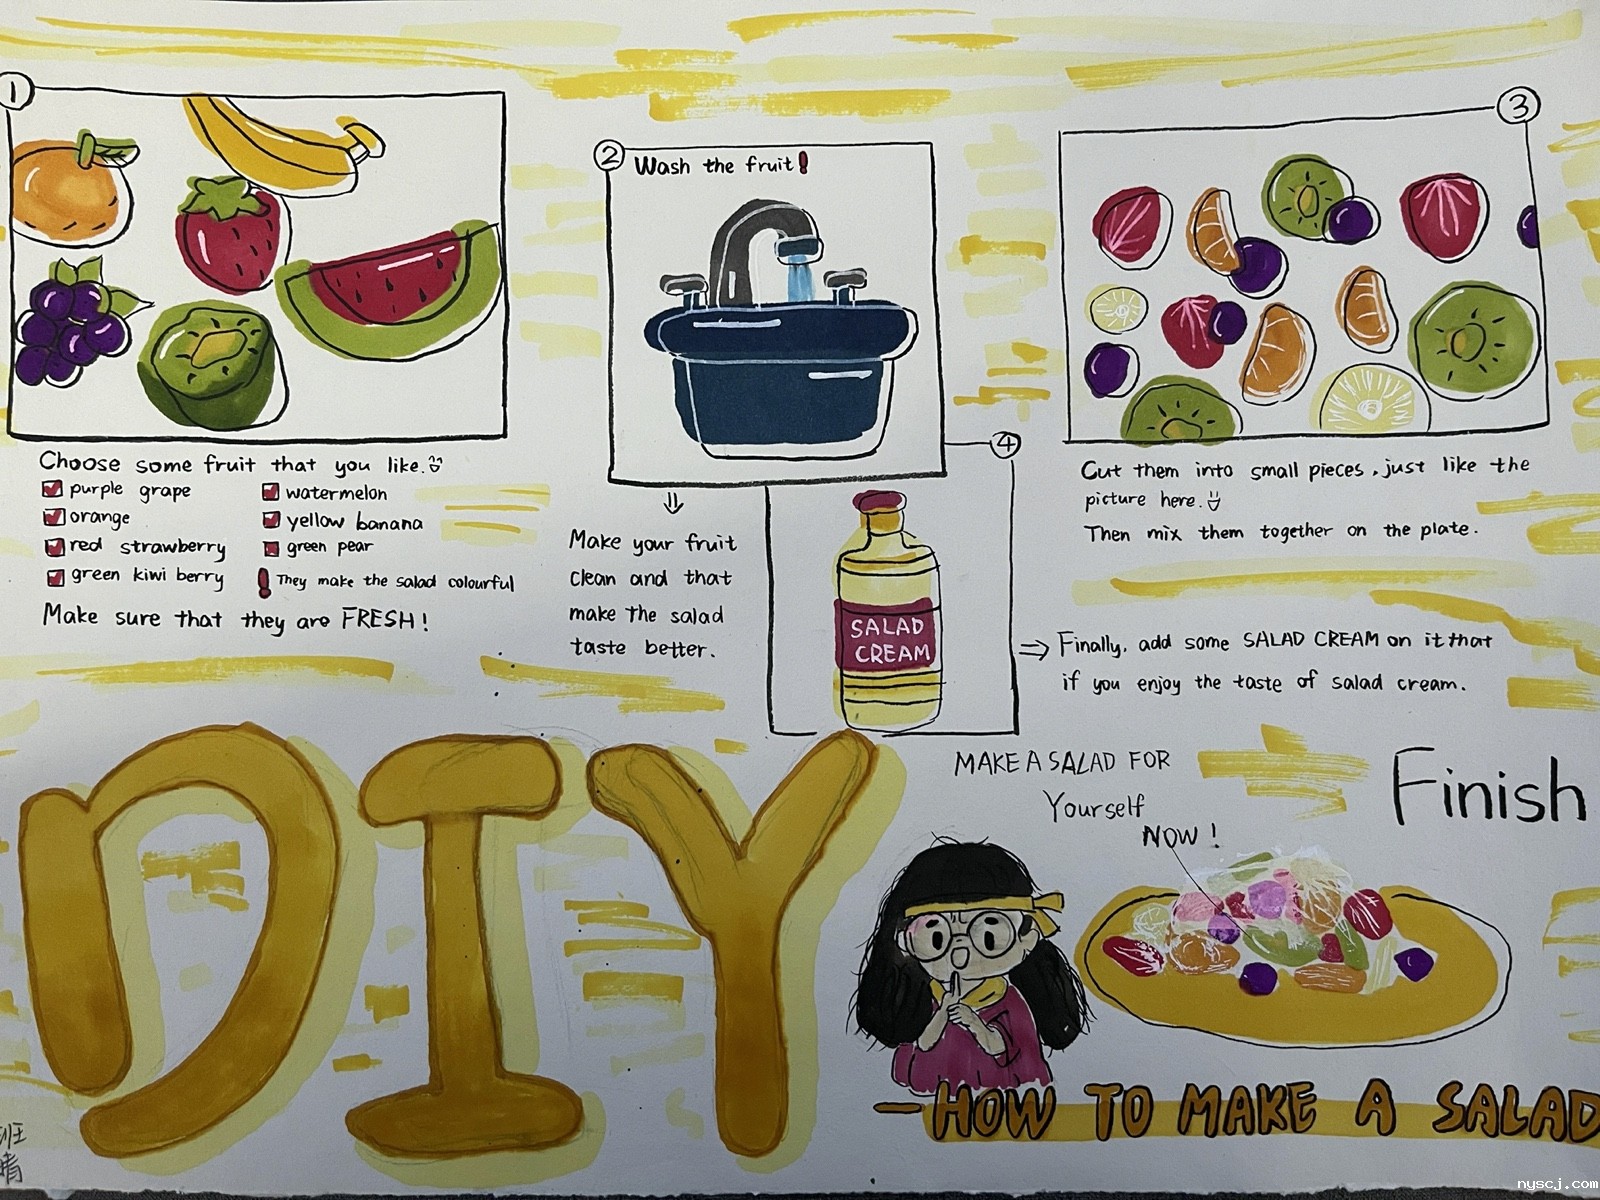 1
Choose some fruit that you like.
purple grape
orange
red strawberry
green kiwi berry
watermelon
yellow banana
green pear
They make the salad colourful
Make sure that they are FRESH!
2
Wash the fruit!
Make your fruit
clean and that
make the salad
taste better.
3
Cut them into small pieces, just like the
picture here.
Then mix them together on the plate.
4
SALAD
CREAM
Finally, add some SALAD CREAM on it that
if you enjoy the taste of salad cream.
MAKE A SALAD FOR
Yourself
NOW!
Finish
DIY
-HOW TO MAKE A SALAD
班
晴
nyscj.com